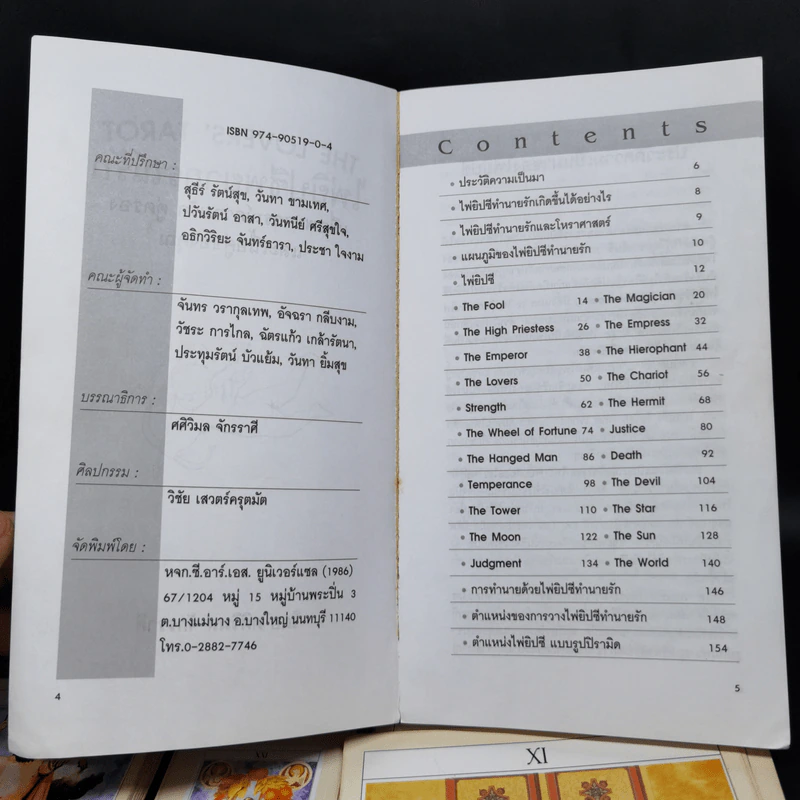 ISBN 974-90519-0-4
คณะที่ปรึกษา :
สุธีร์ รัตน์สุข, วันทา ขามเทศ,
ปวันรัตน์ อาสา, วันทนีย์ ศรีสุขใจ,
อธิกวิริยะ จันทร์ธารา, ประชา ใจงาม
คณะผู้จัดทำ :
จันทร วรากุลเทพ, อัจฉรา กลีบงาม,
วัชระ การไกล, ฉัตรแก้ว เกล้ารัตนา,
ประทุมรัตน์ บัวแย้ม, วันทา ยิ้มสุข
บรรณาธิการ :
ศศิวิมล จักรราศี
ศิลปกรรม :
วิชัย เสวตร์ครุตมัต
จัดพิมพ์โดย :
หจก.ซี.อาร์.เอส. ยูนิเวอร์แซล (1986)
67/1204 หมู่ 15 หมู่บ้านพระปิ่น 3
ต.บางแม่นาง อ.บางใหญ่ นนทบุรี 11140
โทร.0-2882-7746
4
Contents
• ประวัติความเป็นมา 6
• ไพ่ยิปซีทำนายรักเกิดขึ้นได้อย่างไร 8
• ไพ่ยิปซีทำนายรักและโหราศาสตร์ 9
• แผนภูมิของไพ่ยิปซีทำนายรัก 10
• ไพ่ยิปซี 12
• The Fool 14 • The Magician 20
• The High Priestess 26 • The Empress 32
• The Emperor 38 • The Hierophant 44
• The Lovers 50 • The Chariot 56
• Strength 62 • The Hermit 68
• The Wheel of Fortune 74 • Justice 80
• The Hanged Man 86 • Death 92
• Temperance 98 • The Devil 104
• The Tower 110 • The Star 116
• The Moon 122 • The Sun 128
• Judgment 134 • The World 140
• การทำนายด้วยไพ่ยิปซีทำนายรัก 146
• ตำแหน่งของการวางไพ่ยิปซีทำนายรัก 148
• ตำแหน่งไพ่ยิปซี แบบรูปปิรามิด 154
5
XXI
XI